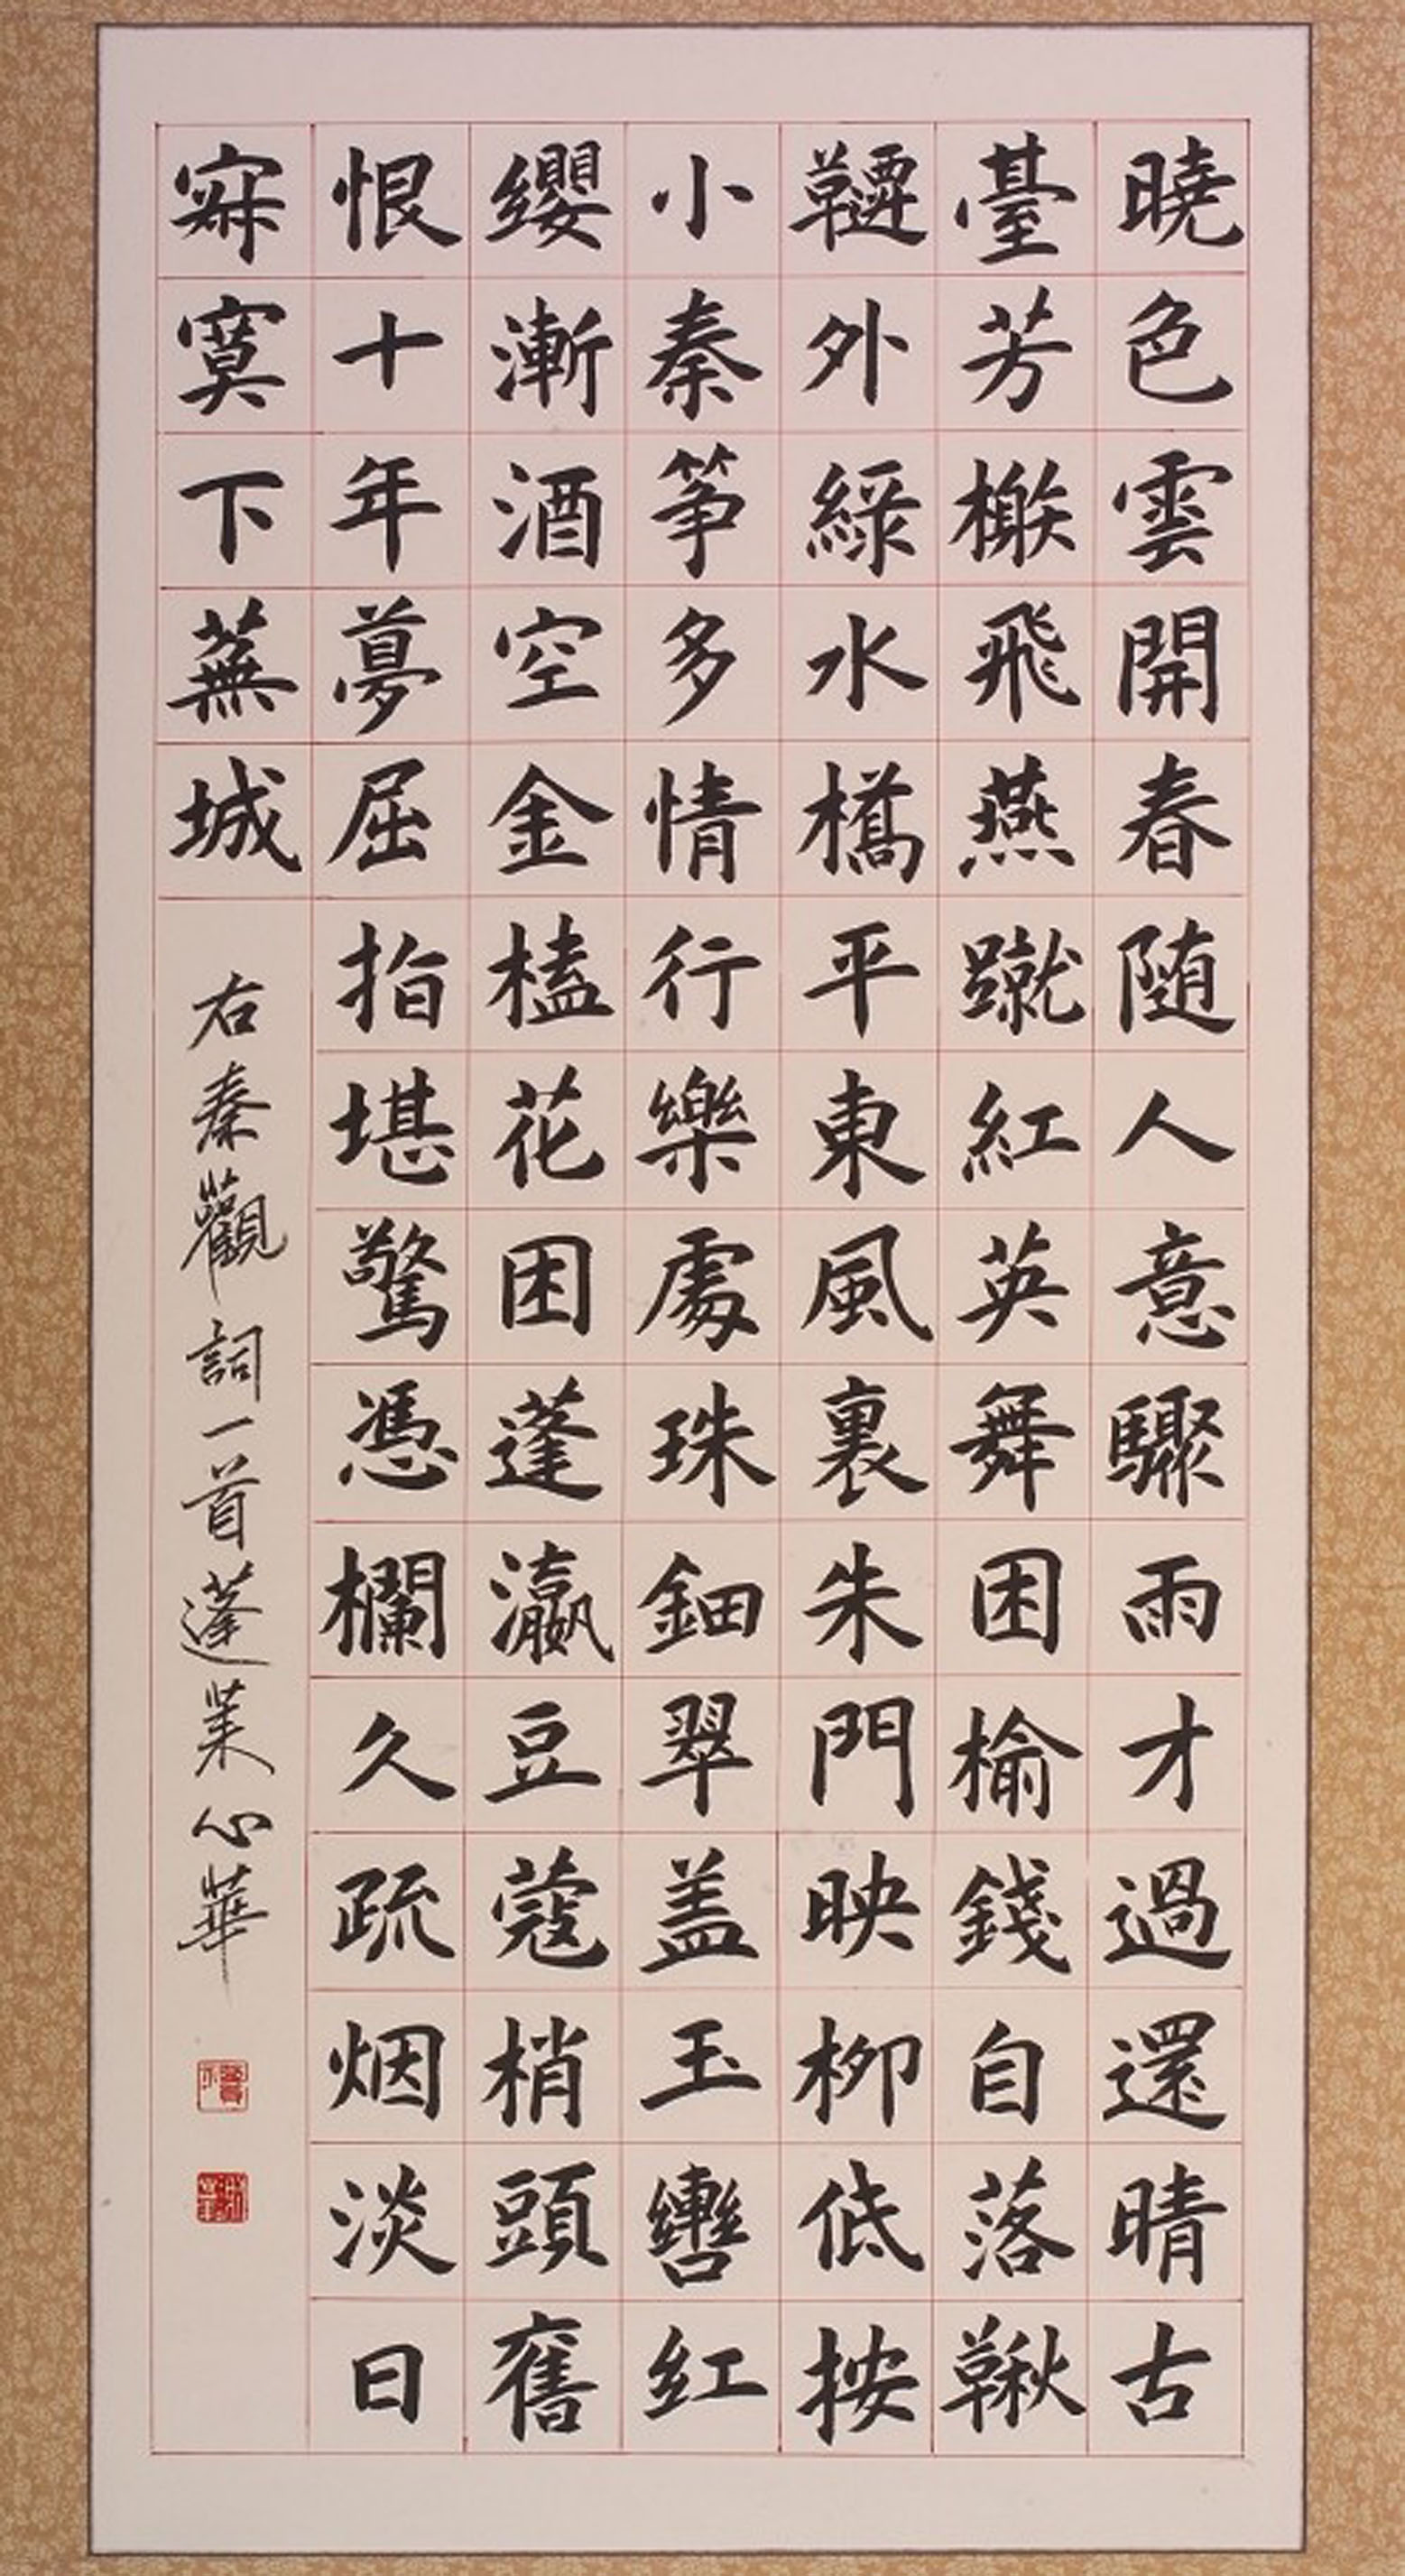 曉色雲開春随人意驟雨才過還晴古
臺芳榭飛燕蹴紅英舞困榆錢自落鞦
韆外綠水橋平東風裏朱門映柳低按
小秦筝多情行樂處珠鈿翠盖玉轡紅
纓漸酒空金榼花困蓬瀛豆蔻梢頭舊
恨十年夢屈指堪驚憑欄久疏烟淡日
寂寞下蕪城
右秦觀詞一首蓬莱心華